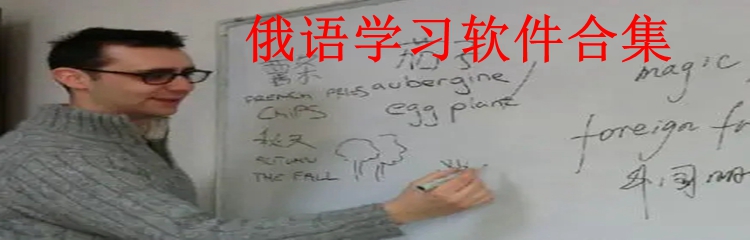 俄语学习软件合集
薯条
茄子
FRENCH FRIES
aubergine
CHIPS
egg plant
秋天
AUTUMN
THE FALL
magic
foreign
外国